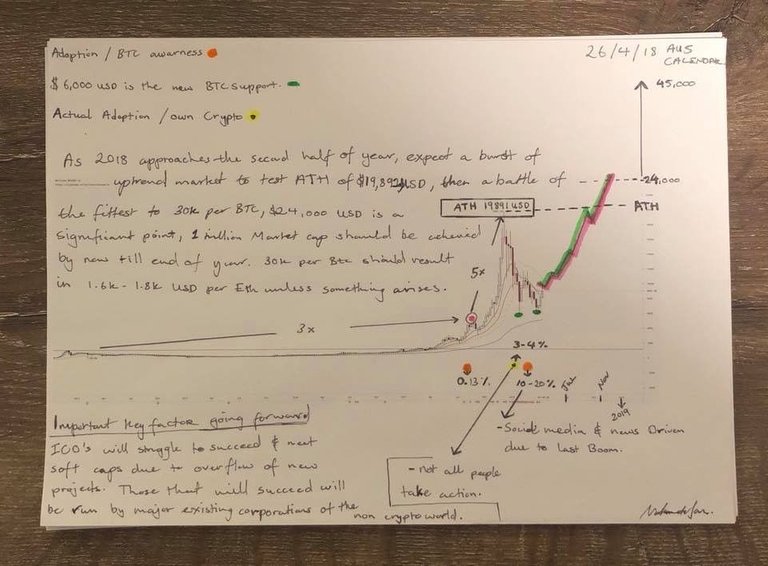 Adoption / BTC awarness
26/4/18 AUS
CALENDAR
$6,000 USD is the new BTC support.
45,000
Actual Adoption / own Crypto
As 2018 approaches the second half of year, expect a burst of
uptrend market to test ATH of $19,892 USD, then a battle of
24,000
the fittest to 30k per BTC, $24,000 USD is a
ATH 19891 USD
ATH
significant point, 1 million Market cap should be achieved
by now till end of year. 30k per Btc should result
5x
in 1.6k - 1.8k USD per Eth unless something arises.
3x
3-4%
0.13%
10-20%
Jul
Nov
2019
Important key factor going forward
ICO's will struggle to succeed & meet
soft caps due to overflow of new
projects. Those that will succeed will
be run by major existing corporations of the non crypto world.
- Social media & news Driven
due to last Boom.
- not all people
take action.